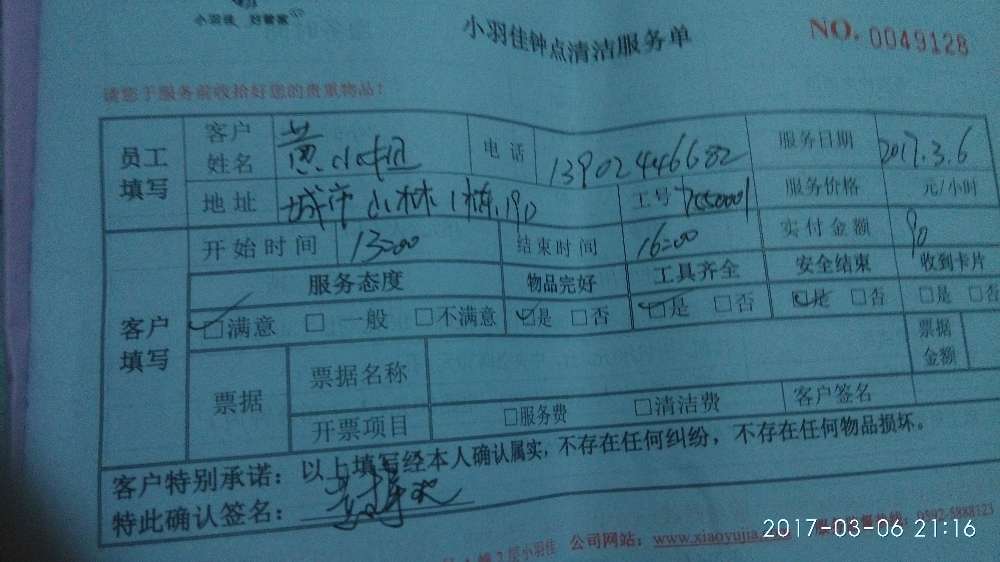 小羽佳 好管家
小羽佳钟点清洁服务单
NO. 0049128
请您于服务前收拾好您的贵重物品！
员工填写 客户姓名 黄小姐 电话 13902446682 服务日期 2017.3.6
地址 城市 小林 1栋 190 工号 服务价格 元/小时
开始时间 13:00 结束时间 16:00 实付金额 90
客户填写 服务态度 物品完好 工具齐全 安全结束 收到卡片
□满意 □一般 □不满意 □是 □否 □是 □否 □是 □否 □是 □否
票据 票据名称 票据金额
开票项目 □服务费 □清洁费 客户签名
客户特别承诺：以上填写经本人确认属实，不存在任何纠纷，不存在任何物品损坏。
特此确认签名：
2层小羽佳 公司网站：www.xiaoyujia. 热线：0592-5888123
2017-03-06 21:16